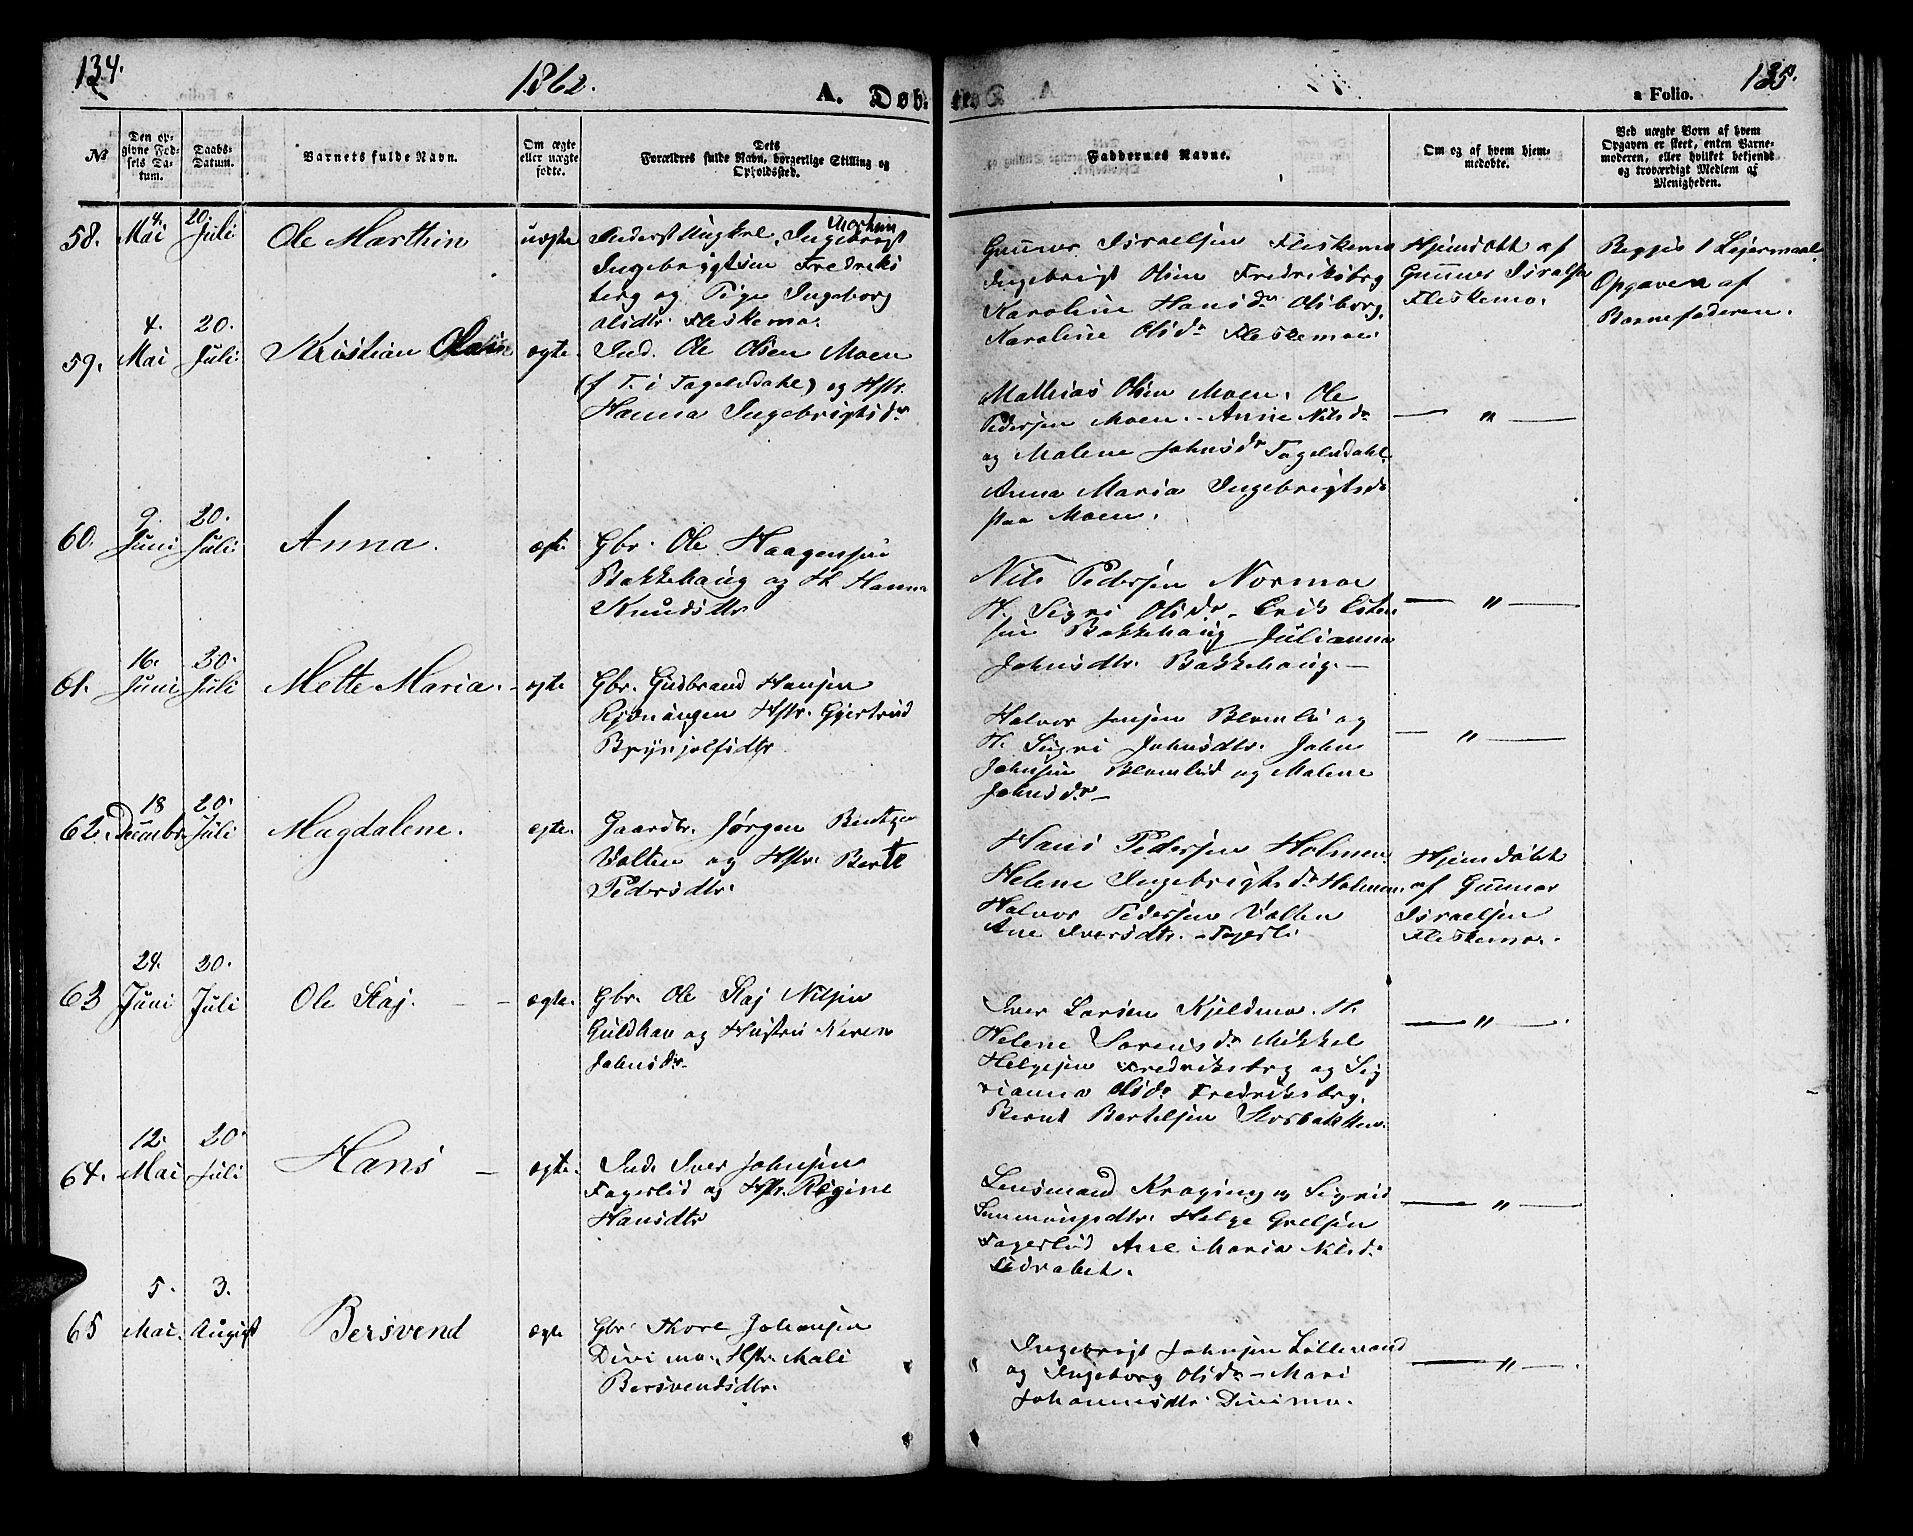 134.
1862.
A. Døb-
te.
135.
a Folio.
№
Den op-
givne Fød-
sels Da-
tum.
Daabs-
Datum.
Barnets fulde Navn.
Om ægte
eller uægte
fødte.
Dets
Forældres fulde Navn, borgerlige Stilling og
Opholdssted.
Faddernes Navne.
Om og af hvem hjem-
medøbte.
Ved uægte Børn af hvem
Opgaven er skeet, enten Barne-
moderen, eller hvilket bekjendt
og troværdigt Medlem af
Menigheden.
58.
4.
Mai
20.
Juli
Ole Marthin
uægte
Morthin
Inderst Ungkrl. Ingebrigt
Ingebrigtsen Fredriks
berg og Pige Ingeborg
Olsdtr. Fleskemo.
Gunner Israelsen Fleskemo
Ingebrigt Olsen Fredriksbrg
Karoline Hansdr Olsborg.
Karoline Olsdr Fleskemo.
Hjemdøbt af
Gunner Israelsn
Fleskemo.
Begges 1 Lejermaal.
Opgaven af
Barnefaderen.
59.
4.
Mai
20.
Juli
Kristian Olain
ægte
Ind. Ole Olsen Moen
(f T. i Fagerlidahl) og Hstr.
Hanna Ingebrigtsdr
Mathias Olsen Moen. Ole
Pedersen Moen. Anne Nilsdr
og Malene Johnsdr Fagerlidahl.
Anna Maria Ingebrigtsdr
paa Moen.
— " —
60.
9.
Juni
20.
Juli
Anna.
ægte
Gbr. Ole Haagensen
Bakkehaug og H. Hanna
Knudsdtr
Nils Pedersen Normoe
H. Sigri Olsdr - Erik Esten
sen Bakkehaug Julianna
Johnsdtr. Bakkehaug. —
— " —
61.
16.
Juni
20.
Juli
Mette Maria. -
ægte
Gbr. Gudbrand Hansen
Kjønangen Hstr. Gjertrud
Brynjolfsdtr.
Halvor Jensen Blomli og
H. Sigri Johnsdtr. John
Johnsen Blomlid og Malene
Johnsdr —
— " —
62.
18
Decembr
20.
Juli
Magdalene.
ægte.
Gaardbr. Jørgen
Volten og Hstr. Berte
Pedersdtr.
Hans Pedersen Holmen
Helene Ingebrigtsdr Holmen.
Halvor Pedersen Volten
Ane Iversdtr. - Fagerli
Hjemdøbt
af Gunnar
Israelsen
Fleskemo.
63
24.
Juni
20.
Juli
Ole Staj. - -
ægte.
Gbr. Ole Staj Nilsen
Guldhav og Hustru Maren
Johnsdr.
Iver Larsen Kjeldmo. H.
Helene Sørensdr Mikkel
Helgesen Fredriksbrg og Sig
rianna Olsdr Fredriksbrg.
Bernt Bertelsen
— " —.
64.
12.
Mai
20.
Juli
Hans —
ægte.
Ind. Iver Johnsen
Fagerlid og Hstr. Regine
Hansdtr
Lensmand og Sigrid
Simmonsdtr. Helge
Fagerlid Ane Maria Nilsdr
— " —
65
5.
Mai.
3.
August
Bersvend
ægte
Gbr. Thore Johansen
Divimo. Hstr. Mali
Bersvendsdtr.
Ingebrigt Johnsen
og Ingeborg Olsdr - Mari
Johannesdtr. Divimo.
— " —.